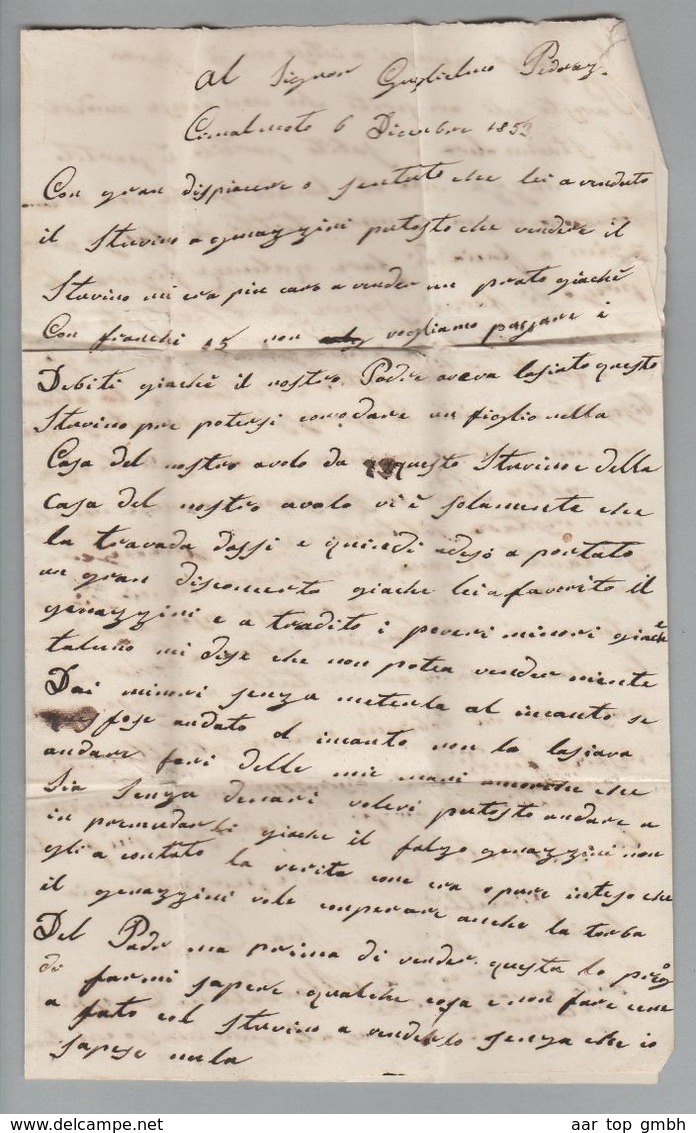 Al Signor Guglielmo Pedrazz.
6 Dicembre 1852
Con gran dispiacere o sentuto che lei a venduto
il Stuvino a genazzini putosto che vendere il
Stuvino mi era piu caro a vender un prato giachè
Con franchi 15 non vogliamo paggare i
Debiti giachè il nostro Padre aveva lasiato questo
Stuvino pre potersi comodare un figlio nella
Casa del nostro avolo da questo Stuvino e della
casa del nostro avolo vi è solamente che
la travada dassi e quindi adeso a portato
un gran disconcerto giache lei a favorito il
genazzini e a tradito i poveri minori giache
taluno mi dise che non potea vender niente
Dai minori senza meterla al incanto se
fose andato al incanto non lo lasiava
andare fori delle mie mani ancorche che
Sia Senza denari volevi putosto andare a
in giache il falzo genazzini non
gli a contato la verita come era opure inteso che
il genazzini vole comperare anche la torba
Del Padr ma prima di vender questa lo prego
di farmi sapere qualche cosa e non fare come
a fato col Stuvino a venderlo senza che io
sapese nulla
aar top gmbh
www.delcampe.net